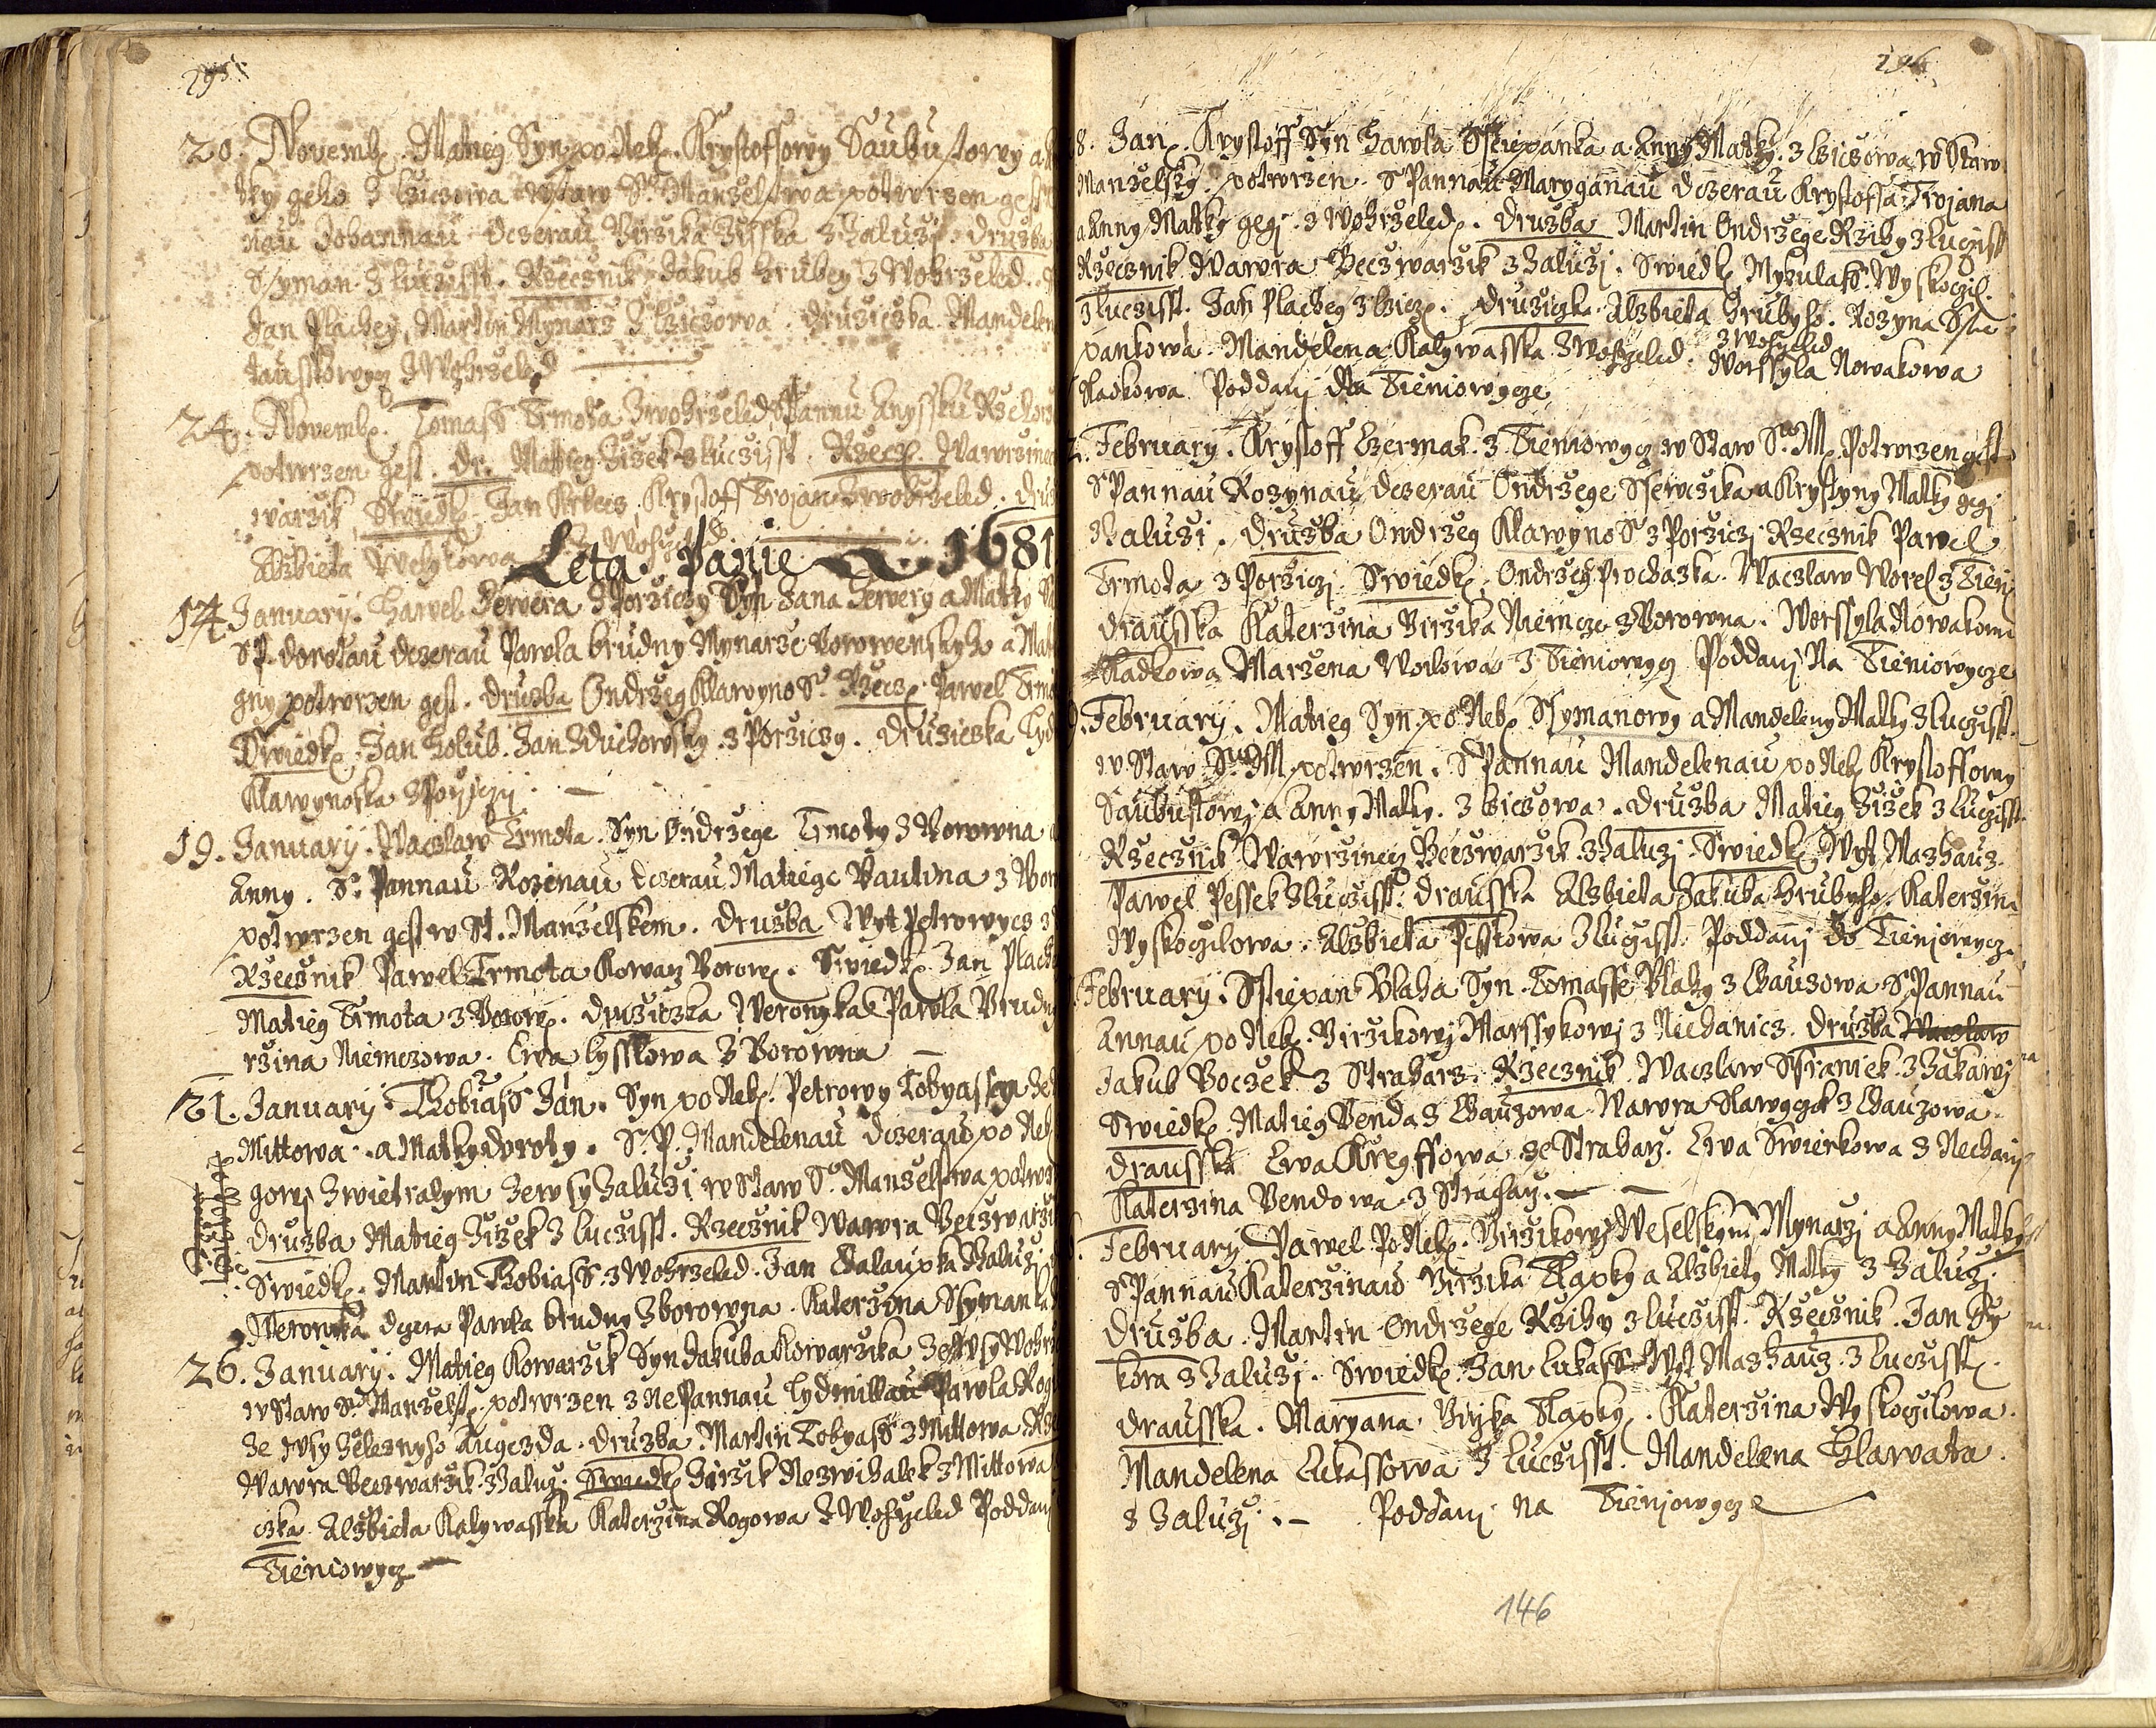 295
20. Novemb. Matieg Syn po Neb. Krystoffowy Saubustowy a
tky geho z Bziczowa w staw S. Manzelstwa potwrzen gest
nau Johannau dczerau Girzika Zisska z Zaluzi. druzba
Ssyman z Luczisst. Rzecznik Jakub Hrubey z Wohrzeled.
Jan Plachey, Martin Mynarz z Bziczowa. druziczka Mandelen
tausskowycz z Wohrzeled
24. Novemb. Tomass Trmota z Wohrzeled S Pannu Anyssku Rzehorz
potwrzen gest. dr. Matieg Zizek z Luczisst. Rzecz. Wawrzinec
warzik, Swiedk. Jan Krkecz, Krystoff Trojan z Wohrzeled. druz
Alzbieta Welykowa z Wohrzeled
Leta Panie 1681
14 January. Hawel Hewera z Porziczy Syn Jana Hewery a Matky
S P. dorotau dczerau Pawla brudny Mynarze Borowenskyho a Mat
gny potwrzen gest. druzba Ondrzeg Klawyno S. Rzecz. Pawel Trmo
Swiedk. Jan Holub. Jan Zduchowsky z Porziczy. druziczka Lyd
Klawynoska z Porziczy. —
19. January. Waczlaw Trmota Syn Ondrzege Trmoty z Borowna
Anny. S. Pannau Rozenau dczerau Matiege Bautina z Bor
potwrzen gest w St. Manzelskem. druzba Wyt Petrowycz z
Rzecznik Pawel Trmota Kowarz Borow. Swiedk. Jan Plache
Matieg Trmota z Borow. druziczka Weronyka Pawla Brudny
rzina Niemczowa. Ewa Lysskowa z Borowna —
21. January. Thobiass Jan. Syn po Neb. Petrowy Tobyassyu ze
Mittowa. a Matky doroty. S. P. Mandelenau dczerau po Neb
gowi Zwietralym ze wsy Zaluzi w staw S. Manzelstwa potwrz
druzba Matieg Zizek z Luczisst. Rzecznik Wawra Beczwarzi
Swiedk. Martin Thobiass z Wohrzeled. Jan Chalaupka z Zaluzi
Weronyka dczera Pawla brudny z borowna. Katerzina Ssymanka
26. January. Matieg Kowarzik Syn Jakuba Kowarzika ze wsy Wohrz
w staw S. Manzelst. potwrzen z ne Pannau Lydmillau Pawla Rog
ze wsy Zeleznyho Augezda. druzba. Martin Tobyass z Mittowa. Rze
Wawra Beczwarzik z Zaluz. Swiedk Jirzik Nezwihalek z Mittowa
czka. Alzbieta Kalywasska Katerzina Rogowa z Wohrzeled Poddani
Tieniowycz —
296
8. Jan. Krystoff Syn Hawla Sstiepanka a Anny Matky. z Bziczowa w staw
Manzelsky. potwrzen. S Pannau Maryganau dczerau Krystofa Trojana
a Anny Matky gegi. z Wohrzeled. druzba Martin Ondrzege Rzihy z Luczisst
Rzecznik Wawra Beczwarzik z Zaluzi. Swiedk Mykulass Wyskoczil
z Luczisst. Jan Plachey z Bzicz. druziczka Alzbieta Hrubyho. Rozyna Sstie
z Wohrzeled
pankowa. Mandelena Kalywasska z Wohrzeled. Worssyla Nowakowa
Kadkowa Poddani Na Tieniowycze
2. February. Krystoff Czermak z Tieniowycz w staw S. M. Potwrzen gest
S Pannau Rozynau dczerau Ondrzege Ssewczika a Krystyny Matky gegi
Zaluzi. druzba Ondrzeg Klawyno S z Porziczi Rzecznik Pawel
Trmota z Porziczi. Swiedk. Ondrzeg Prochazka. Waczlaw Worel z Tieni
drausska Katerzina Girzika Niemcze z Borowna. Worssyla Nowakowa
Kadkowa Marzena Woilowa z Tieniowycz Poddani Na Tieniowycze
9. February. Matieg Syn po Neb Ssymanowy a Mandeleny Matky z Luczisst.
w Staw S. M potwrzen. S Pannau Mandelenau po Neb Krystoffowy
Saubustowy a Anny Matky. z Bziczowa. druzba Matieg Zizek z Luczisst.
Rzecznik Wawrzinecz Beczwarzik z Zaluzi. Swiedk Wyt Mazhauz.
Pawel Pessek z Luczisst. drausska Alzbieta Jakuba Hrubyho. Katerzina
Wyskoczilowa. Alzbieta Pesskowa z Luczisst. Poddani do Tieniowycz.
February. Sstiepan Blaha Syn Tomasse Blahy z Chauzowa S Pannau
Annau po Neb. Girzikowi Marssykowi z Nechanicz. druzba Waczlaw
Jakub Boczek z Strabarz. Rzecznik Waczlaw Sframek z Zakawi
Swiedk. Matieg Benda z Chauzowa. Wawra Klawyczek z Chauzowa.
drausska Ewa Kreyffowa ze Strabarz. Ewa Swierkowa z Nechani
Katerzina Bendowa z Strabarz. — —
February Pawel Po Neb. Girzikowi Weselskym Mynarzi a Anny Matky
S Pannau Katerzinau Girzika Klapky a Alzbiety Matky z Zaluzi
druzba. Martin Ondrzege Rzihy z Luczisst. Rzecznik. Jan Sy
kora z Zaluzi. Swiedk. Jan Lukass Wyt Mazhauz z Luczisst.
drausska. Maryana Girzka Klapky. Katerzina Wyskoczilowa.
Mandelena Lukassowa z Luczisst. Mandelena Hlawata.
z Zaluzi. — Poddani na Tieniowycze
146